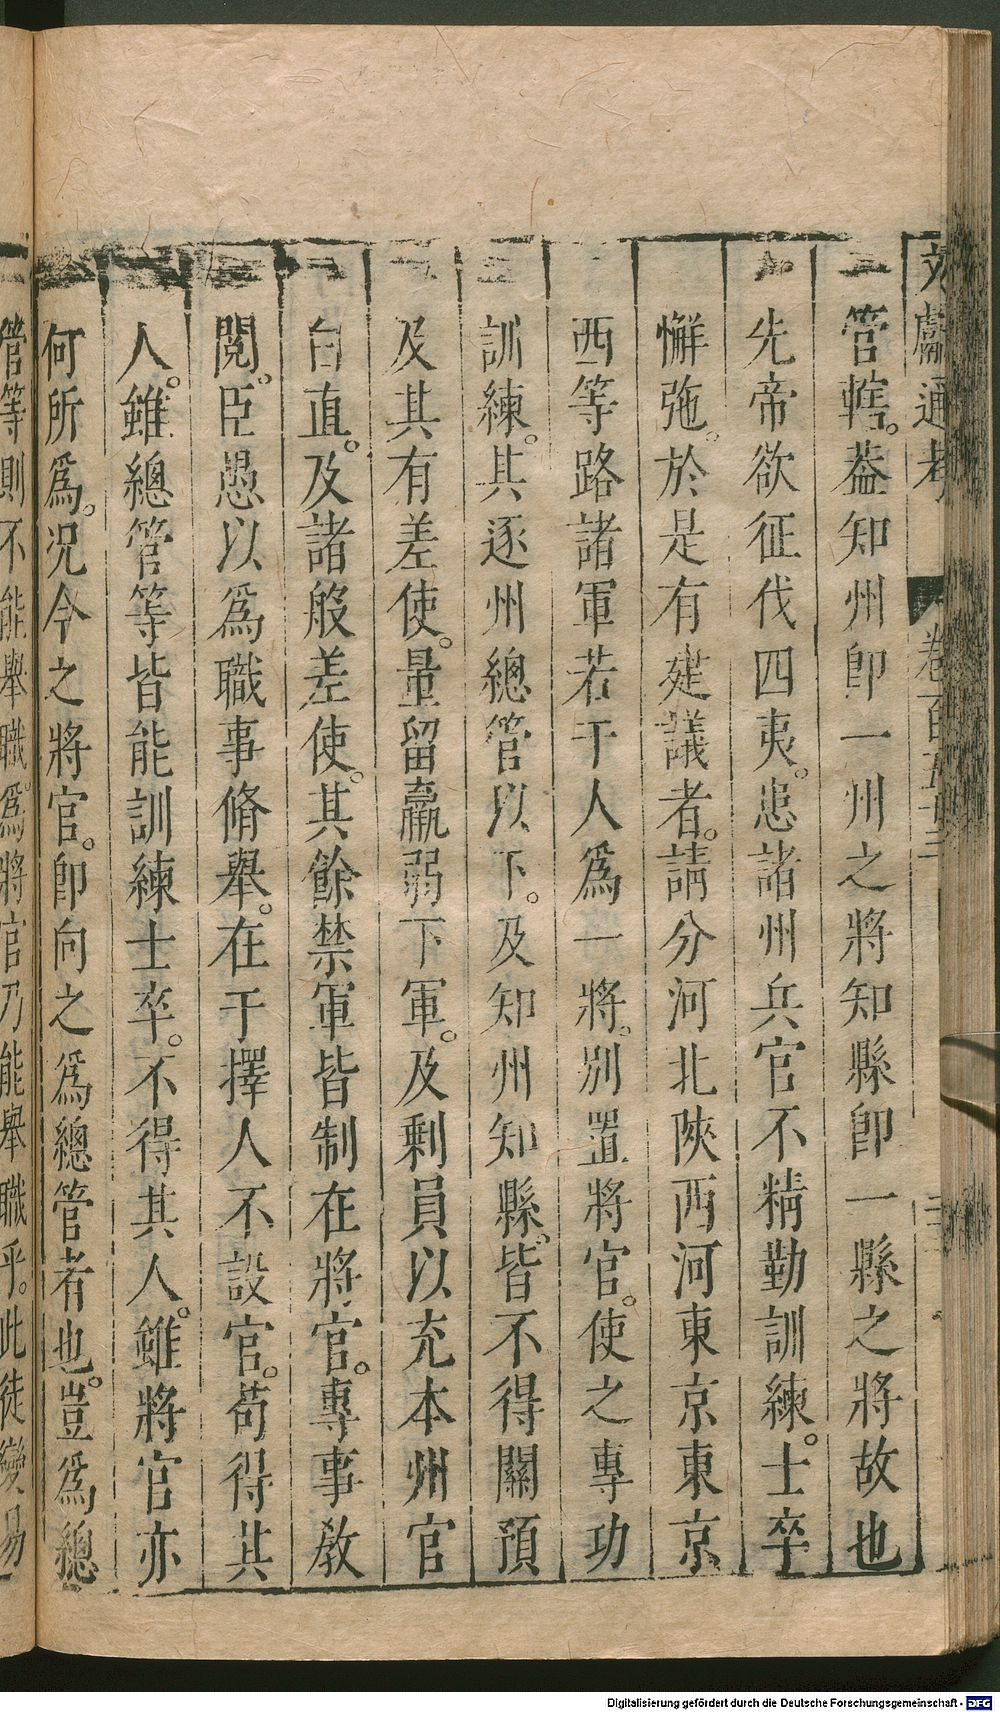 文獻通考 卷一百五十三
管轄。蓋知州卽一州之將知縣卽一縣之將故也
先帝欲征伐四夷。患諸州兵官不精勤訓練。士卒
懈弛。於是有建議者。請分河北陝西河東京東京
西等路諸軍若干人爲一將。別置將官。使之專功
訓練。其逐州總管以下。及知州知縣。皆不得關預
及其有差使。量留羸弱下軍。及剩員以充本州官
白直。及諸般差使。其餘禁軍皆制在將官。專事教
閱。臣愚以爲職事脩舉。在于擇人不設官。苟得其
人。雖總管等皆能訓練士卒。不得其人。雖將官亦
何所爲。况今之將官。卽向之爲總管者也。豈爲總
管等則不能舉職。爲將官乃能舉職乎。此徒變易
Digitalisierung gefördert durch die Deutsche Forschungsgemeinschaft - DFG